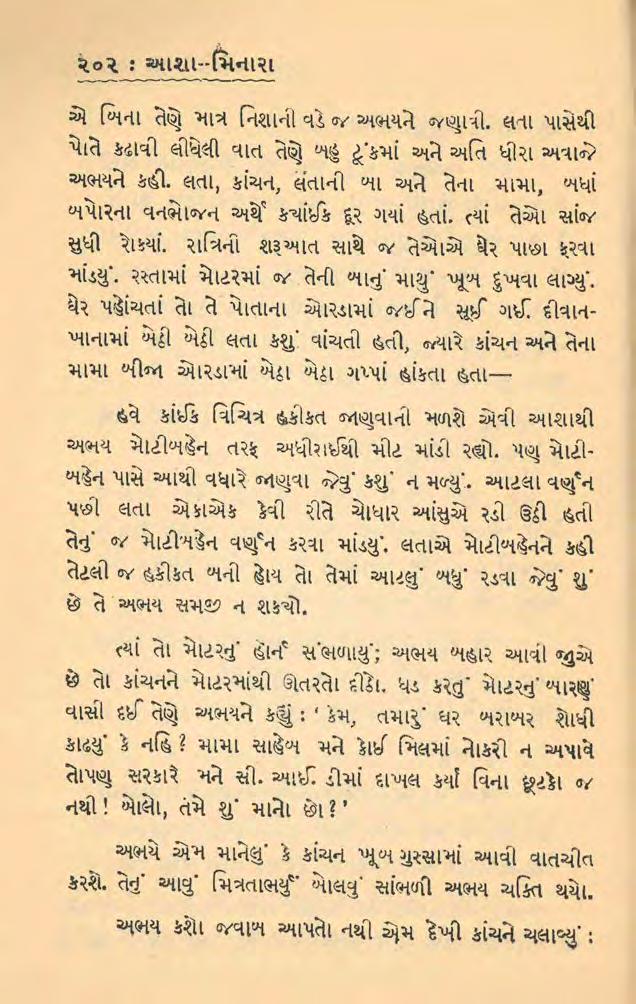 ૨૦૨ : આશા--મિનારા
એ બિના તેણે માત્ર નિશાની વડે જ અભયને જણાવી. લતા પાસેથી
પોતે કઢાવી લીધેલી વાત તેણે બહુ ટૂંકમાં અને અતિ ધીરા અવાજે
અભયને કહી. લતા, કાંચન, લતાની બા અને તેના મામા, બધાં
બપોરના વનભોજન અર્થે કયાંઈક દૂર ગયાં હતાં. ત્યાં તેઓ સાંજ
સુધી રોકયાં. રાત્રિની શરૂઆત સાથે જ તેઓએ ઘેર પાછા ફરવા
માંડયું. રસ્તામાં મોટરમાં જ તેની બાનું માથું ખૂબ દુખવા લાગ્યું.
ઘેર પહોંચતાં તો તે પોતાના ઓરડામાં જઈને સૂઈ ગઈ. દીવાન-
ખાનામાં બેઠી બેઠી લતા કશું વાંચતી હતી, જ્યારે કાંચન અને તેના
મામા બીજા ઓરડામાં બેઠા બેઠા ગપ્પાં હાંકતા હતા—
હવે કાંઈક વિચિત્ર હકીકત જાણવાની મળશે એવી આશાથી
અભય મોટીબહેન તરફ અધીરાઈથી મીટ માંડી રહ્યો. પણ મોટી-
બહેન પાસે આથી વધારે જાણવા જેવું કશું ન મળ્યું. આટલા વર્ણન
પછી લતા એકાએક કેવી રીતે ચોધાર આંસુએ રડી ઉઠી હતી
તેનું જ મોટીબહેન વર્ણન કરવા માંડયું. લતાએ મોટીબહેનને કહી
તેટલી જ હકીકત બની હોય તો તેમાં આટલું બધું રડવા જેવું શું
છે તે અભય સમજી ન શકયો.
ત્યાં તો મોટરનું હોર્ન સંભળાયું; અભય બહાર આવી જુએ
છે તો કાંચનને મોટરમાંથી ઊતરતો દીઠો. ધડ કરતું મોટરનું બારણું
વાસી દઈ તેણે અભયને કહ્યું : ‘ કેમ, તમારું ઘર બરાબર શોધી
કાઢયું કે નહિ ? મામા સાહેબ મને કોઈ મિલમાં નોકરી ન અપાવે
તોપણ સરકારે મને સી. આઈ. ડીમાં દાખલ કર્યા વિના છૂટકો જ
નથી ! બોલો, તમે શું માનો છો ? ’
અભયે એમ માનેલું કે કાંચન ખૂબ ગુસ્સામાં આવી વાતચીત
કરશે. તેનું આવું મિત્રતાભર્યું બોલવું સાંભળી અભય ચકિત થયો.
અભય કશો જવાબ આપતો નથી એમ દેખી કાંચને ચલાવ્યું :